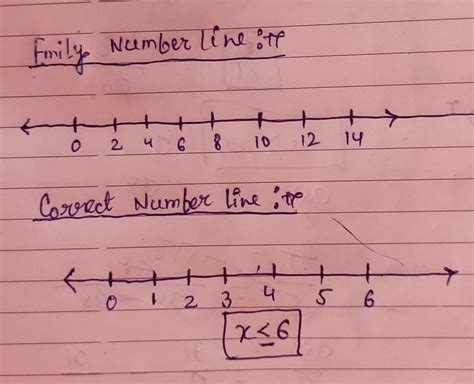 Emily Number line :-
0 2 4 6 8 10 12 14
Correct Number line :-
0 1 2 3 4 5 6
x ≤ 6